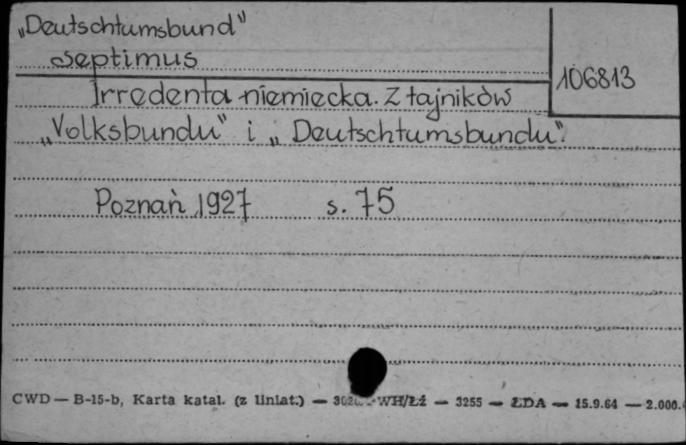 „Deutschtumsbund"
Septimus
106813
Irredenta niemiecka. Z tajników
„Volksbundu" i „Deutschtumsbundu".
Poznań 1927 s. 75
CWD — B-15-b, Karta katal. (z liniat.) — WH/Łż — 3255 — ŁDA — 15.9.64 — 2.000.